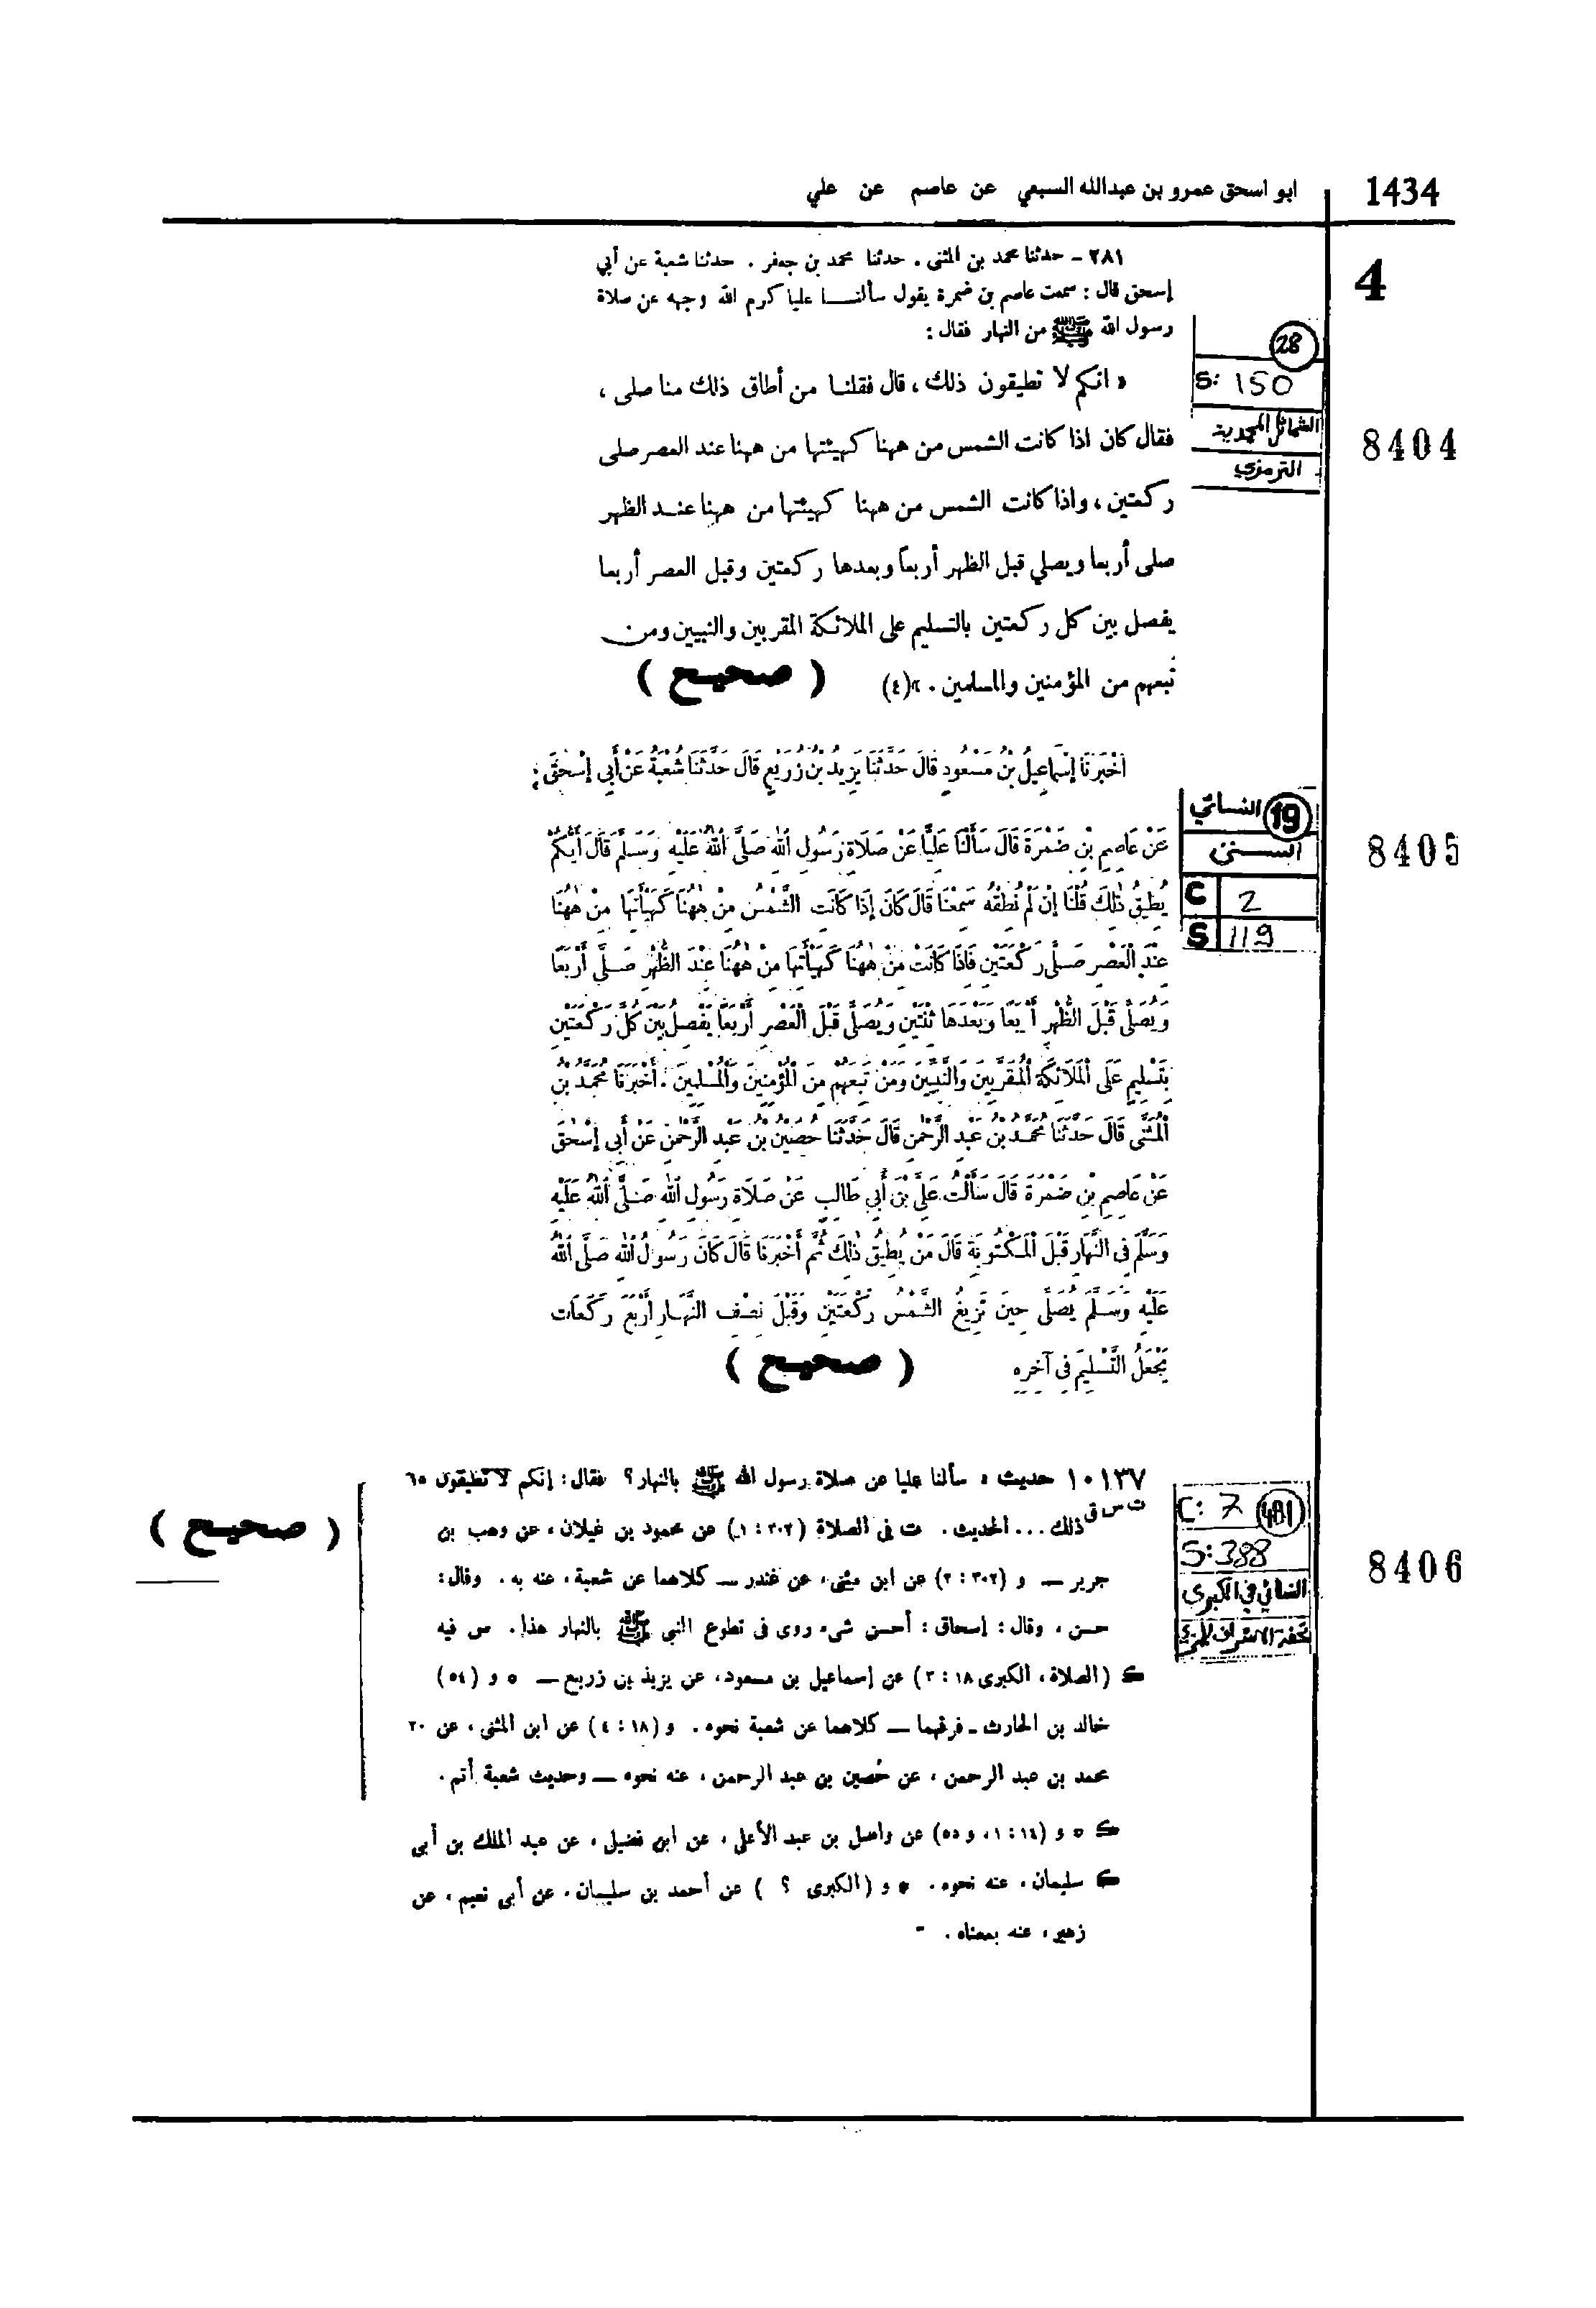 1434
ابو اسحق عمرو بن عبدالله السبعي عن عاصم عن علي
4
٢٨١ - حدثنا محمد بن المثنى . حدثنا محمد بن جعفر . حدثنا شعبة عن أبي
إسحق قال : سمعت عاصم بن ضمرة يقول سألنا عليا كرم الله وجهه عن صلاة
رسول الله ﷺ من النهار فقال :
« انكم لا تطيقون ذلك ، قال فقلنا من أطاق ذلك منا صلى ،
فقال كان اذا كانت الشمس من ههنا كهيئتها من ههنا عند العصر صلى
ركعتين ، واذا كانت الشمس من ههنا كهيئتها من ههنا عند الظهر
صلى أربعا ويصلي قبل الظهر أربعاً وبعدها ركعتين وقبل العصر أربعا
يفصل بين كل ركعتين بالتسليم على الملائكة المقربين والنبيين ومن
تبعهم من المؤمنين والمسلمين . »(٤) ( صحيح )
28
S: 150
الشمائل المحمدية
الترمذي
8404
أَخْبَرَنَا إِسْمَاعِيلُ بْنُ مَسْعُودٍ قَالَ حَدَّثَنَا يَزِيدُ بْنُ زُرَيْعٍ قَالَ حَدَّثَنَا شُعْبَةُ عَنْ أَبِي إِسْحٰقَ
عَنْ عَاصِمِ بْنِ ضَمْرَةَ قَالَ سَأَلْنَا عَلِيًّا عَنْ صَلَاةِ رَسُولِ اللهِ صَلَّى اللهُ عَلَيْهِ وَسَلَّمَ قَالَ أَيُّكُمْ
يُطِيقُ ذٰلِكَ قُلْنَا إِنْ لَمْ نُطِقْهُ سَمِعْنَا قَالَ كَانَ إِذَا كَانَتِ الشَّمْسُ مِنْ هٰهُنَا كَهَيْأَتِهَا مِنْ هٰهُنَا
عِنْدَ الْعَصْرِ صَلَّى رَكْعَتَيْنِ فَإِذَا كَانَتْ مِنْ هٰهُنَا كَهَيْأَتِهَا مِنْ هٰهُنَا عِنْدَ الظُّهْرِ صَلَّى أَرْبَعًا
وَيُصَلِّي قَبْلَ الظُّهْرِ أَرْبَعًا وَبَعْدَهَا ثِنْتَيْنِ وَيُصَلِّي قَبْلَ الْعَصْرِ أَرْبَعًا يَفْصِلُ بَيْنَ كُلِّ رَكْعَتَيْنِ
بِتَسْلِيمٍ عَلَى الْمَلَائِكَةِ الْمُقَرَّبِينَ وَالنَّبِيِّينَ وَمَنْ تَبِعَهُمْ مِنَ الْمُؤْمِنِينَ وَالْمُسْلِمِينَ . أَخْبَرَنَا مُحَمَّدُ بْنُ
الْمُثَنَّى قَالَ حَدَّثَنَا مُحَمَّدُ بْنُ عَبْدِ الرَّحْمٰنِ قَالَ حَدَّثَنَا حُصَيْنُ بْنُ عَبْدِ الرَّحْمٰنِ عَنْ أَبِي إِسْحٰقَ
عَنْ عَاصِمِ بْنِ ضَمْرَةَ قَالَ سَأَلْتُ عَلِيَّ بْنَ أَبِي طَالِبٍ عَنْ صَلَاةِ رَسُولِ اللهِ صَلَّى اللهُ عَلَيْهِ
وَسَلَّمَ فِي النَّهَارِ قَبْلَ الْمَكْتُوبَةِ قَالَ مَنْ يُطِيقُ ذٰلِكَ ثُمَّ أَخْبَرَنَا قَالَ كَانَ رَسُولُ اللهِ صَلَّى اللهُ
عَلَيْهِ وَسَلَّمَ يُصَلِّي حِينَ تَزِيغُ الشَّمْسُ رَكْعَتَيْنِ وَقَبْلَ نِصْفِ النَّهَارِ أَرْبَعَ رَكَعَاتٍ
يَجْعَلُ التَّسْلِيمَ فِي آخِرِهِ ( صحيح )
19 النسائي
السنن
C 2
S 119
8405
١٠١٣٧ حديث : سألنا عليا عن صلاة رسول الله ﷺ بالنهار ؟ فقال : إنكم لا تطيقون ٦٥
ت س ق ذلك ... الحديث . ت فى الصلاة (٣٠٢ : ١) عن محمود بن غيلان ، عن وهب بن
جرير — و (٣٠٢ : ٢) عن ابن مثنى ، عن غندر — كلاهما عن شعبة ، عنه به . وقال :
حسن ، وقال : إسحاق : أحسن شىء روى فى تطوع النبي ﷺ بالنهار هذا . س فيه
ك (الصلاة ، الكبرى ١٨ : ٣) عن إسماعيل بن مسعود ، عن يزيد بن زريع — ٥ و (٥٤)
خالد بن الحارث - فرقهما — كلاهما عن شعبة نحوه . و (١٨ : ٤) عن ابن المثنى ، عن ٢٠
محمد بن عبد الرحمن ، عن حُصين بن عبد الرحمن ، عنه نحوه — وحديث شعبة أتم .
ك ٥ و (١٤ : ١، و ٥٥) عن واصل بن عبد الأعلى ، عن ابن فضيل ، عن عبد الملك بن أبى
ك سليمان ، عنه نحوه . ٥ و (الكبرى ؟ ) عن أحمد بن سليمان ، عن أبى نعيم ، عن
زهير ، عنه بمعناه . -
( صحيح )
C: 7 481
S: 388
النسائي في الكبرى
تحفة الاشراف للمزي
8406